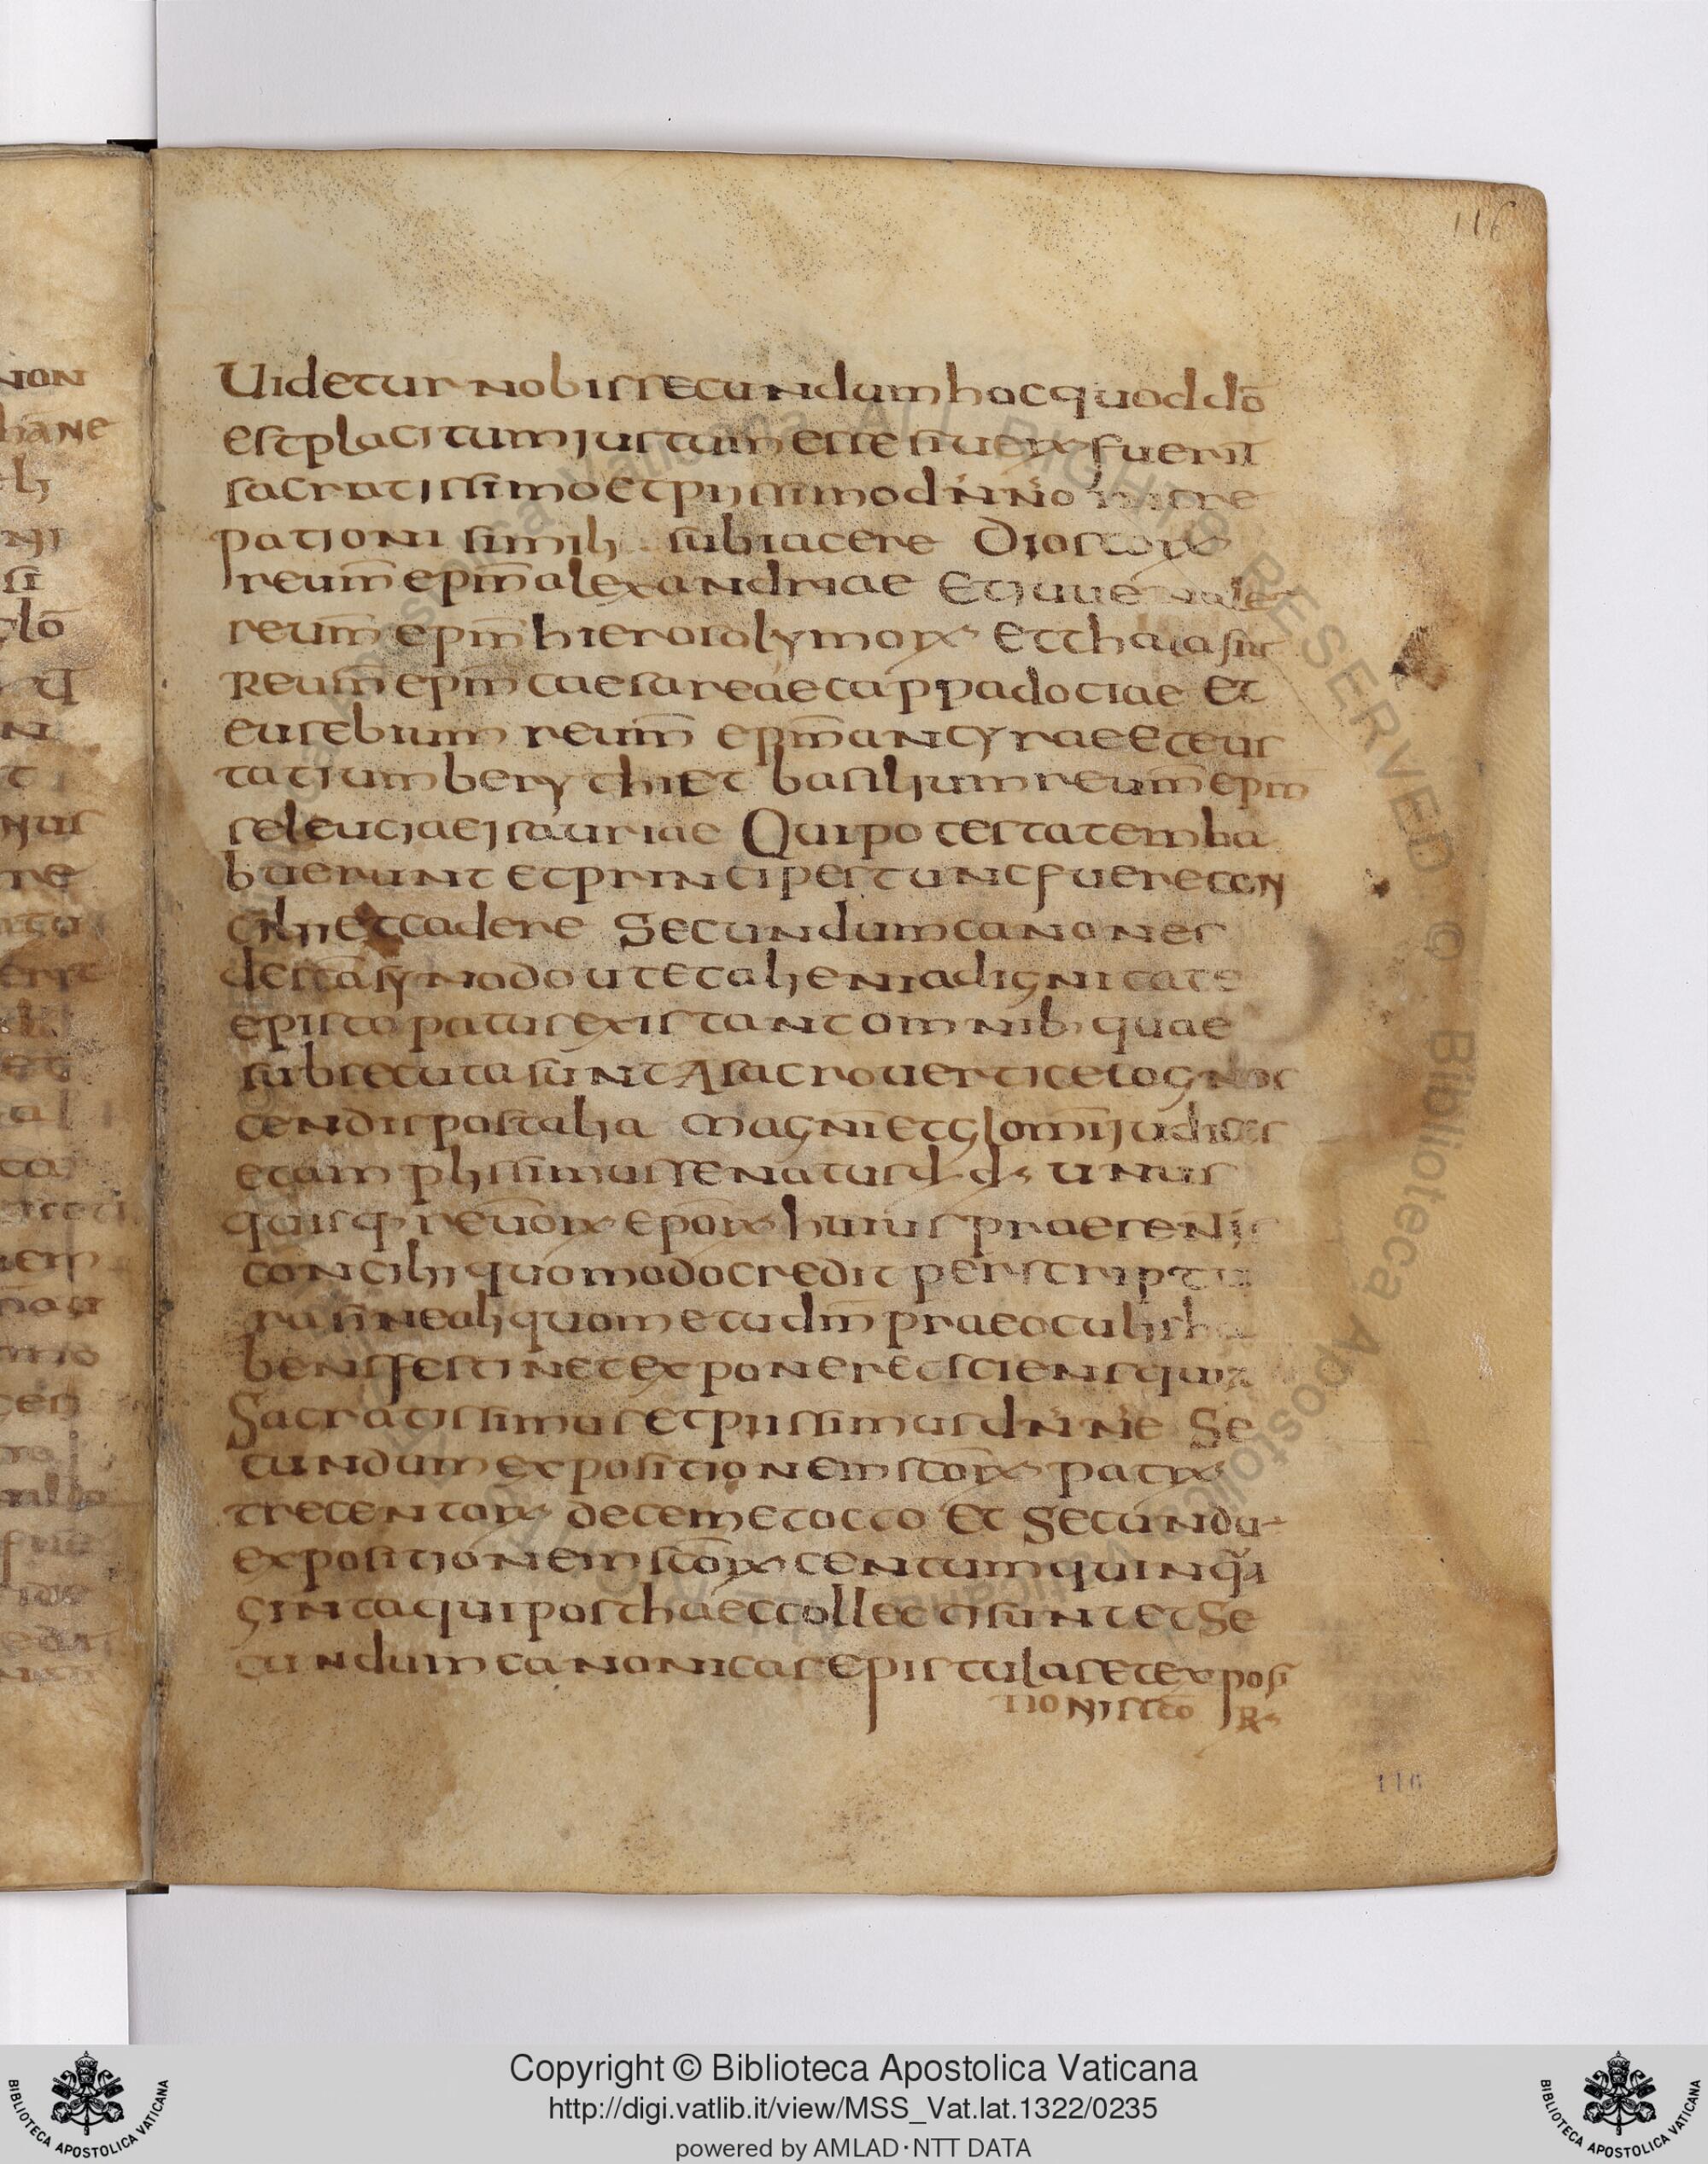 116
Uidetur nobis secundum hoc quod dō
est placitum iustum esse siue rꝝ fuerit
sacratissimo et piissimo dńńo nostre
pationi simili subiacere Dioscorꝝ
reum̄ epm̄ alexandriae Et iuuenale
reum̄ epm̄ hierosolymorꝝ Et thalassiū
Reum̄ epm̄ caesareae cappadociae Et
eusebium reum̄ epm̄ ancyrae et eus
tatium berythi et basilium reum̄ epm̄
seleuciae isauriae Qui potestatem ha
buerunt et principes tunc fuere con
cilii et cadere Secundum canones
de sc̄a synodo ut et alieni a dignitate
episcopatus existant omnib; quae
subsecuta sunt A sacro uertice cognos
cendis post alia Magni et glom̄ iudices
et amplissimus senatus d d Unus
quisq; reuōrꝝ epōrꝝ huius praesentis
concilii quomodo credit per scriptu
ra sine aliquo metu dm̄ prae oculis ha
bens festinet exponere sciens quia
Sacratissimus et piissimus dńńe Se
cundum expositionem sc̄orꝝ patrꝝ
trecentorꝝ decem et octo Et Secundū
expositionem sc̄orꝝ centum quinqua
ginta qui post haec collecti sunt et Se
cundum canonicas epistulas et exposi
tionis sc̄o rꝝ
116
Copyright © Biblioteca Apostolica Vaticana
http://digi.vatlib.it/view/MSS_Vat.lat.1322/0235
powered by AMLAD·NTT DATA
BIBLIOTECA APOSTOLICA VATICANA
BIBLIOTECA APOSTOLICA VATICANA